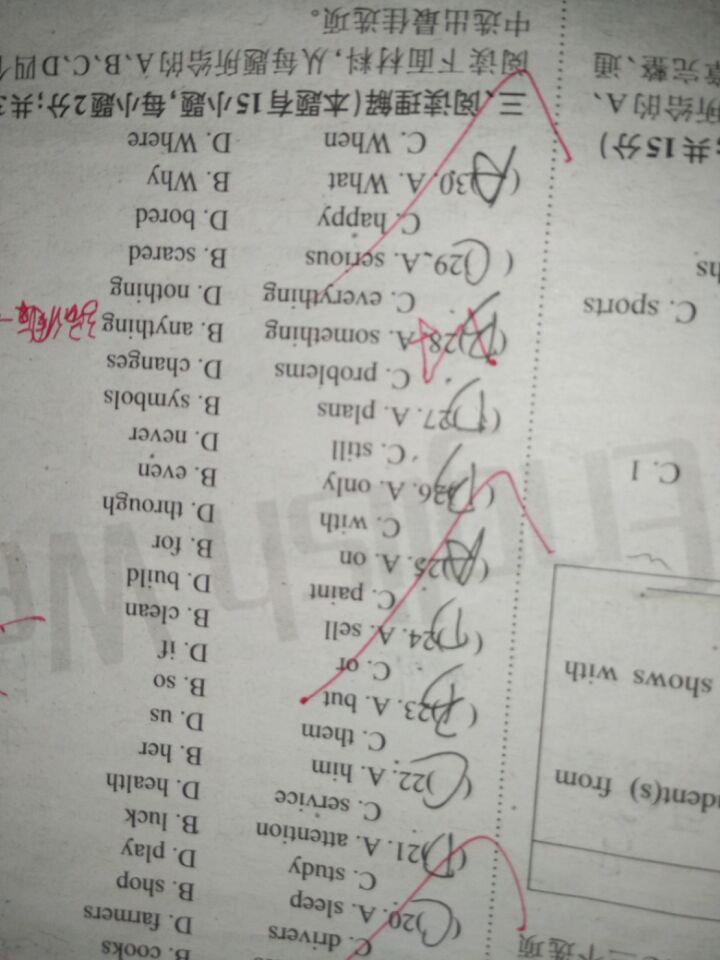 个选项
udent(s) from
shows with
C. 1
C. sports
hs
;共15分)
所给的A、
章完整、通
B. cooks
C. drivers D. farmers
(C)20. A. sleep B. shop
C. study D. play
(D)21. A. attention B. luck
C. service D. health
(C)22. A. him B. her
C. them D. us
(B)23. A. but B. so
C. or D. if
(D)24. A. sell B. clean
C. paint D. build
(A)25. A. on B. for
C. with D. through
( )26. A. only B. even
C. still D. never
(D)27. A. plans B. symbols
C. problems D. changes
( )28. A. something B. anything
C. everything D. nothing
(C)29. A. serious B. scared
C. happy D. bored
(A)30. A. What B. Why
C. When D. Where
三、阅读理解(本题有15小题,每小题2分;共3
阅读下面材料,从每题所给的A、B、C、D四个
中选出最佳选项。